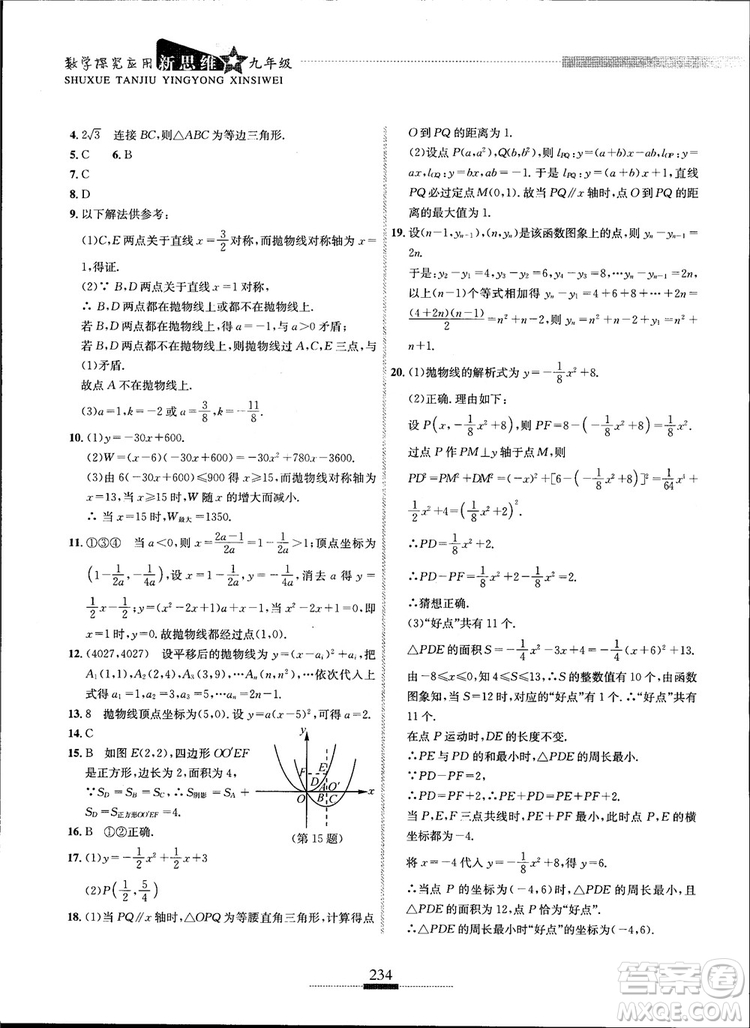 数学探究应用 新思维 九年级
SHUXUE TANJIU YINGYONG XINSIWEI
4. 2√3 连接 BC,则△ABC 为等边三角形.
5. C 6. B
7. C
8. D
9. 以下解法供参考:
(1)C,E 两点关于直线 x=3/2 对称,而抛物线对称轴为 x=1,得证.
(2)∵ B,D 两点关于直线 x=1 对称,
∴ B,D 两点都在抛物线上或都不在抛物线上.
若 B,D 两点都在抛物线上,得 a=-1,与 a>0 矛盾;
若 B,D 两点都不在抛物线上,则抛物线过 A,C,E 三点,与
(1)矛盾.
故点 A 不在抛物线上.
(3)a=1,k=-2 或 a=3/8,k=-11/8.
10. (1)y=-30x+600.
(2)W=(x-6)(-30x+600)=-30x²+780x-3600.
(3)由 6(-30x+600)≤900 得 x≥15,而抛物线对称轴为 x=13,当 x≥15,W 随 x 的增大而减小.
∴ 当 x=15 时,W最大=1350.
11. ①③④ 当 a<0,则 x=(2a-1)/2a=1-1/2a>1;顶点坐标为
(1-1/2a,-1/4a),设 x=1-1/2a,y=-1/4a,消去 a 得 y=
1/2x-1/2;由(x²-2x+1)a+(x-1-y)=0,当 x=1 时,y=0.故抛物线都经过点(1,0).
12. (4027,4027) 设平移后的抛物线为 y=(x-aᵢ)²+aᵢ,把
A₁(1,1),A₂(2,4),A₃(3,9),…,Aₙ(n,n²),…依次代入上式得 a₁=1,a₂=3,a₃=5,…aₙ=2n-1.
13. 8 抛物线顶点坐标为(5,0).设 y=a(x-5)²,可得 a=2.
14. C
15. B 如图 E(2,2),四边形 OO′EF
是正方形,边长为 2,面积为 4,
∵S_D=S_B=S_C,∴S阴影=S_A+
S_D=S正方形OO′EF=4.
y
F
E
D
A
O′
O
B
C
x
(第 15 题)
16. B ①②正确.
17. (1)y=1/2x²+1/2x+3
(2)P(1/2,5/4)
18. (1)当 PQ∥x 轴时,△OPQ 为等腰直角三角形,计算得点
O 到 PQ 的距离为 1.
(2)设点 P(a,a²),Q(b,b²),则 l_PQ:y=(a+b)x-ab,l_OP:y=
ax,l_OQ:y=bx,ab=-1.于是 l_PQ:y=(a+b)x+1,直线
PQ 必过定点 M(0,1).故当 PQ∥x 轴时,点 O 到 PQ 的距离的最大值为 1.
19. 设(n-1,yₙ₋₁),(n,yₙ)是该函数图象上的点,则 yₙ-yₙ₋₁=
2n.
于是:yₙ-yₙ₋₁=2n,yₙ₋₁-yₙ₋₂=2(n-1),…,y₂-y₁=4.
以上(n-1)个等式相加得 yₙ-y₁=4+6+8+…+2n=
(4+2n)(n-1)/2,又由于 y₁=1,所以当 x=n 时,yₙ=n²+
n-1.
20. (1)抛物线的解析式为 y=-1/8x²+8.
(2)正确.理由如下:
设 P(x,-1/8x²+8),则 PF=8-(-1/8x²+8)=1/8x².
过点 P 作 PM⊥y 轴于点 M,则
PD²=PM²+DM²=(-x)²+[6-(-1/8x²+8)]²=1/64x⁴+
1/2x²+4=(1/8x²+2)².
∴PD=1/8x²+2.
∴PD-PF=1/8x²+2-1/8x²=2.
∴猜想正确.
(3)“好点”共有 11 个.
△PDE 的面积 S=-1/4x²-3x+4=-1/4(x+6)²+13.
由-8≤x≤0,知 4≤S≤13,∴S 的整数值有 10 个,由函数
图象知,当 S=12 时,对应的“好点”有 2 个,∴“好点”共有
11 个.
在点 P 运动时,DE 的长度不变.
∴PE 与 PD 的和最小时,△PDE 的周长最小.
∵PD-PF=2,∴PD=PF+2.
∴PE+PD=PE+PF+2.
当 P、E、F 三点共线时,PE+PF 最小,此时点 P、E 的横
坐标都为-4.
将 x=-4 代入 y=-1/8x²+8,得 y=6.
∴当点 P 的坐标为(-4,6)时,△PDE 的周长最小,且
△PDE 的面积为 12,点 P 恰为“好点”.
∴△PDE 的周长最小时“好点”的坐标为(-4,6).
234
答案圈
MXQE.COM